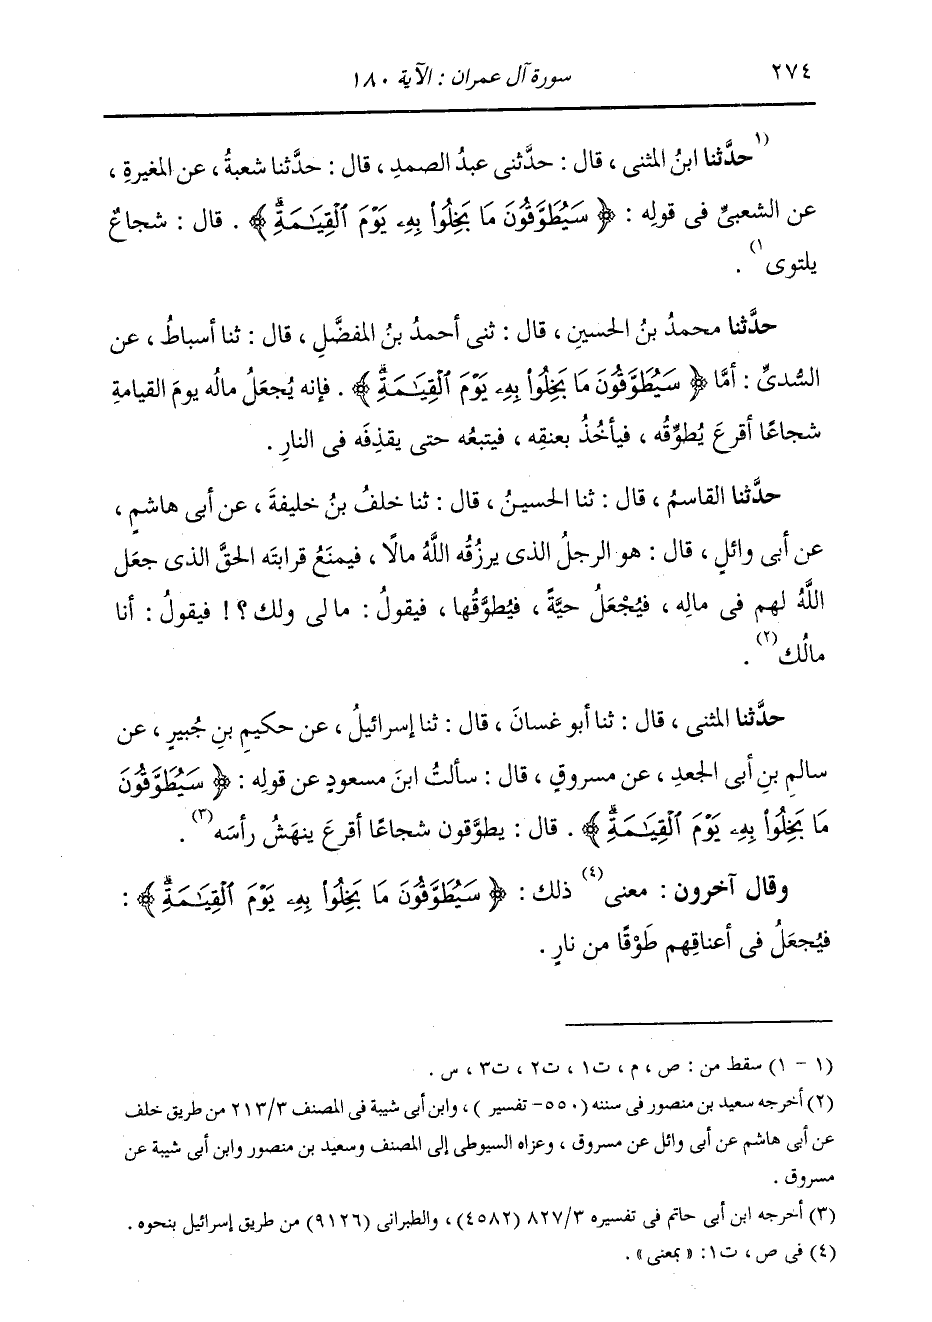 ٢٧٤
سورة آل عمران : الآية ١٨٠
(١حدَّثنا ابنُ المثنى ، قال : حدَّثنى عبدُ الصمدِ ، قال : حدَّثنا شعبةُ ، عن المغيرةِ ،
عن الشعبىِّ فى قولِه : ﴿ سَيُطَوَّقُونَ مَا بَخِلُوا۟ بِهِۦ يَوْمَ ٱلْقِيَـٰمَةِۗ ﴾ . قال : شجاعٌ
يلتوى١) .
حدَّثنا محمدُ بنُ الحسينِ ، قال : ثنى أحمدُ بنُ المفضَّلِ ، قال : ثنا أسباطُ ، عن
السُّدىِّ : أمَّا ﴿ سَيُطَوَّقُونَ مَا بَخِلُوا۟ بِهِۦ يَوْمَ ٱلْقِيَـٰمَةِۗ ﴾ . فإنه يُجعَلُ مالُه يومَ القيامةِ
شجاعًا أقرعَ يُطوِّقُه ، فيأخُذُ بعنقِه ، فيتبعُه حتى يقذِفَه فى النارِ .
حدَّثنا القاسمُ ، قال : ثنا الحسينُ ، قال : ثنا خلفُ بنُ خليفةَ ، عن أبى هاشمٍ ،
عن أبى وائلٍ ، قال : هو الرجلُ الذى يرزُقُه اللَّهُ مالًا ، فيمنَعُ قرابتَه الحقَّ الذى جعَل
اللَّهُ لهم فى مالِه ، فيُجْعَلُ حيَّةً ، فيُطوَّقُها ، فيقولُ : مالى ولك ؟ ! فيقولُ : أنا
مالُك(٢) .
حدَّثنا المثنى ، قال : ثنا أبو غسانَ ، قال : ثنا إسرائيلُ ، عن حكيمِ بنِ جُبيرٍ ، عن
سالمِ بنِ أبى الجعدِ ، عن مسروقٍ ، قال : سألتُ ابنَ مسعودٍ عن قولِه : ﴿ سَيُطَوَّقُونَ
مَا بَخِلُوا۟ بِهِۦ يَوْمَ ٱلْقِيَـٰمَةِۗ ﴾ . قال : يطوَّقون شجاعًا أقرعَ ينهَشُ رأسَه(٣) .
وقال آخرون : معنى(٤) ذلك : ﴿ سَيُطَوَّقُونَ مَا بَخِلُوا۟ بِهِۦ يَوْمَ ٱلْقِيَـٰمَةِۗ ﴾ :
فيُجعَلُ فى أعناقِهم طَوْقًا من نارٍ .
(١ - ١) سقط من : ص ، م ، ت١ ، ت٢ ، ت٣ ، س .
(٢) أخرجه سعيد بن منصور فى سننه (٥٥٠- تفسير ) ، وابن أبى شيبة فى المصنف ٢١٣/٣ من طريق خلف
عن أبى هاشم عن أبى وائل عن مسروق ، وعزاه السيوطى إلى المصنف وسعيد بن منصور وابن أبى شيبة عن
مسروق .
(٣) أخرجه ابن أبى حاتم فى تفسيره ٨٢٧/٣ (٤٥٨٢) ، والطبرانى (٩١٢٦) من طريق إسرائيل بنحوه .
(٤) فى ص ، ت١: «بمعنى» .